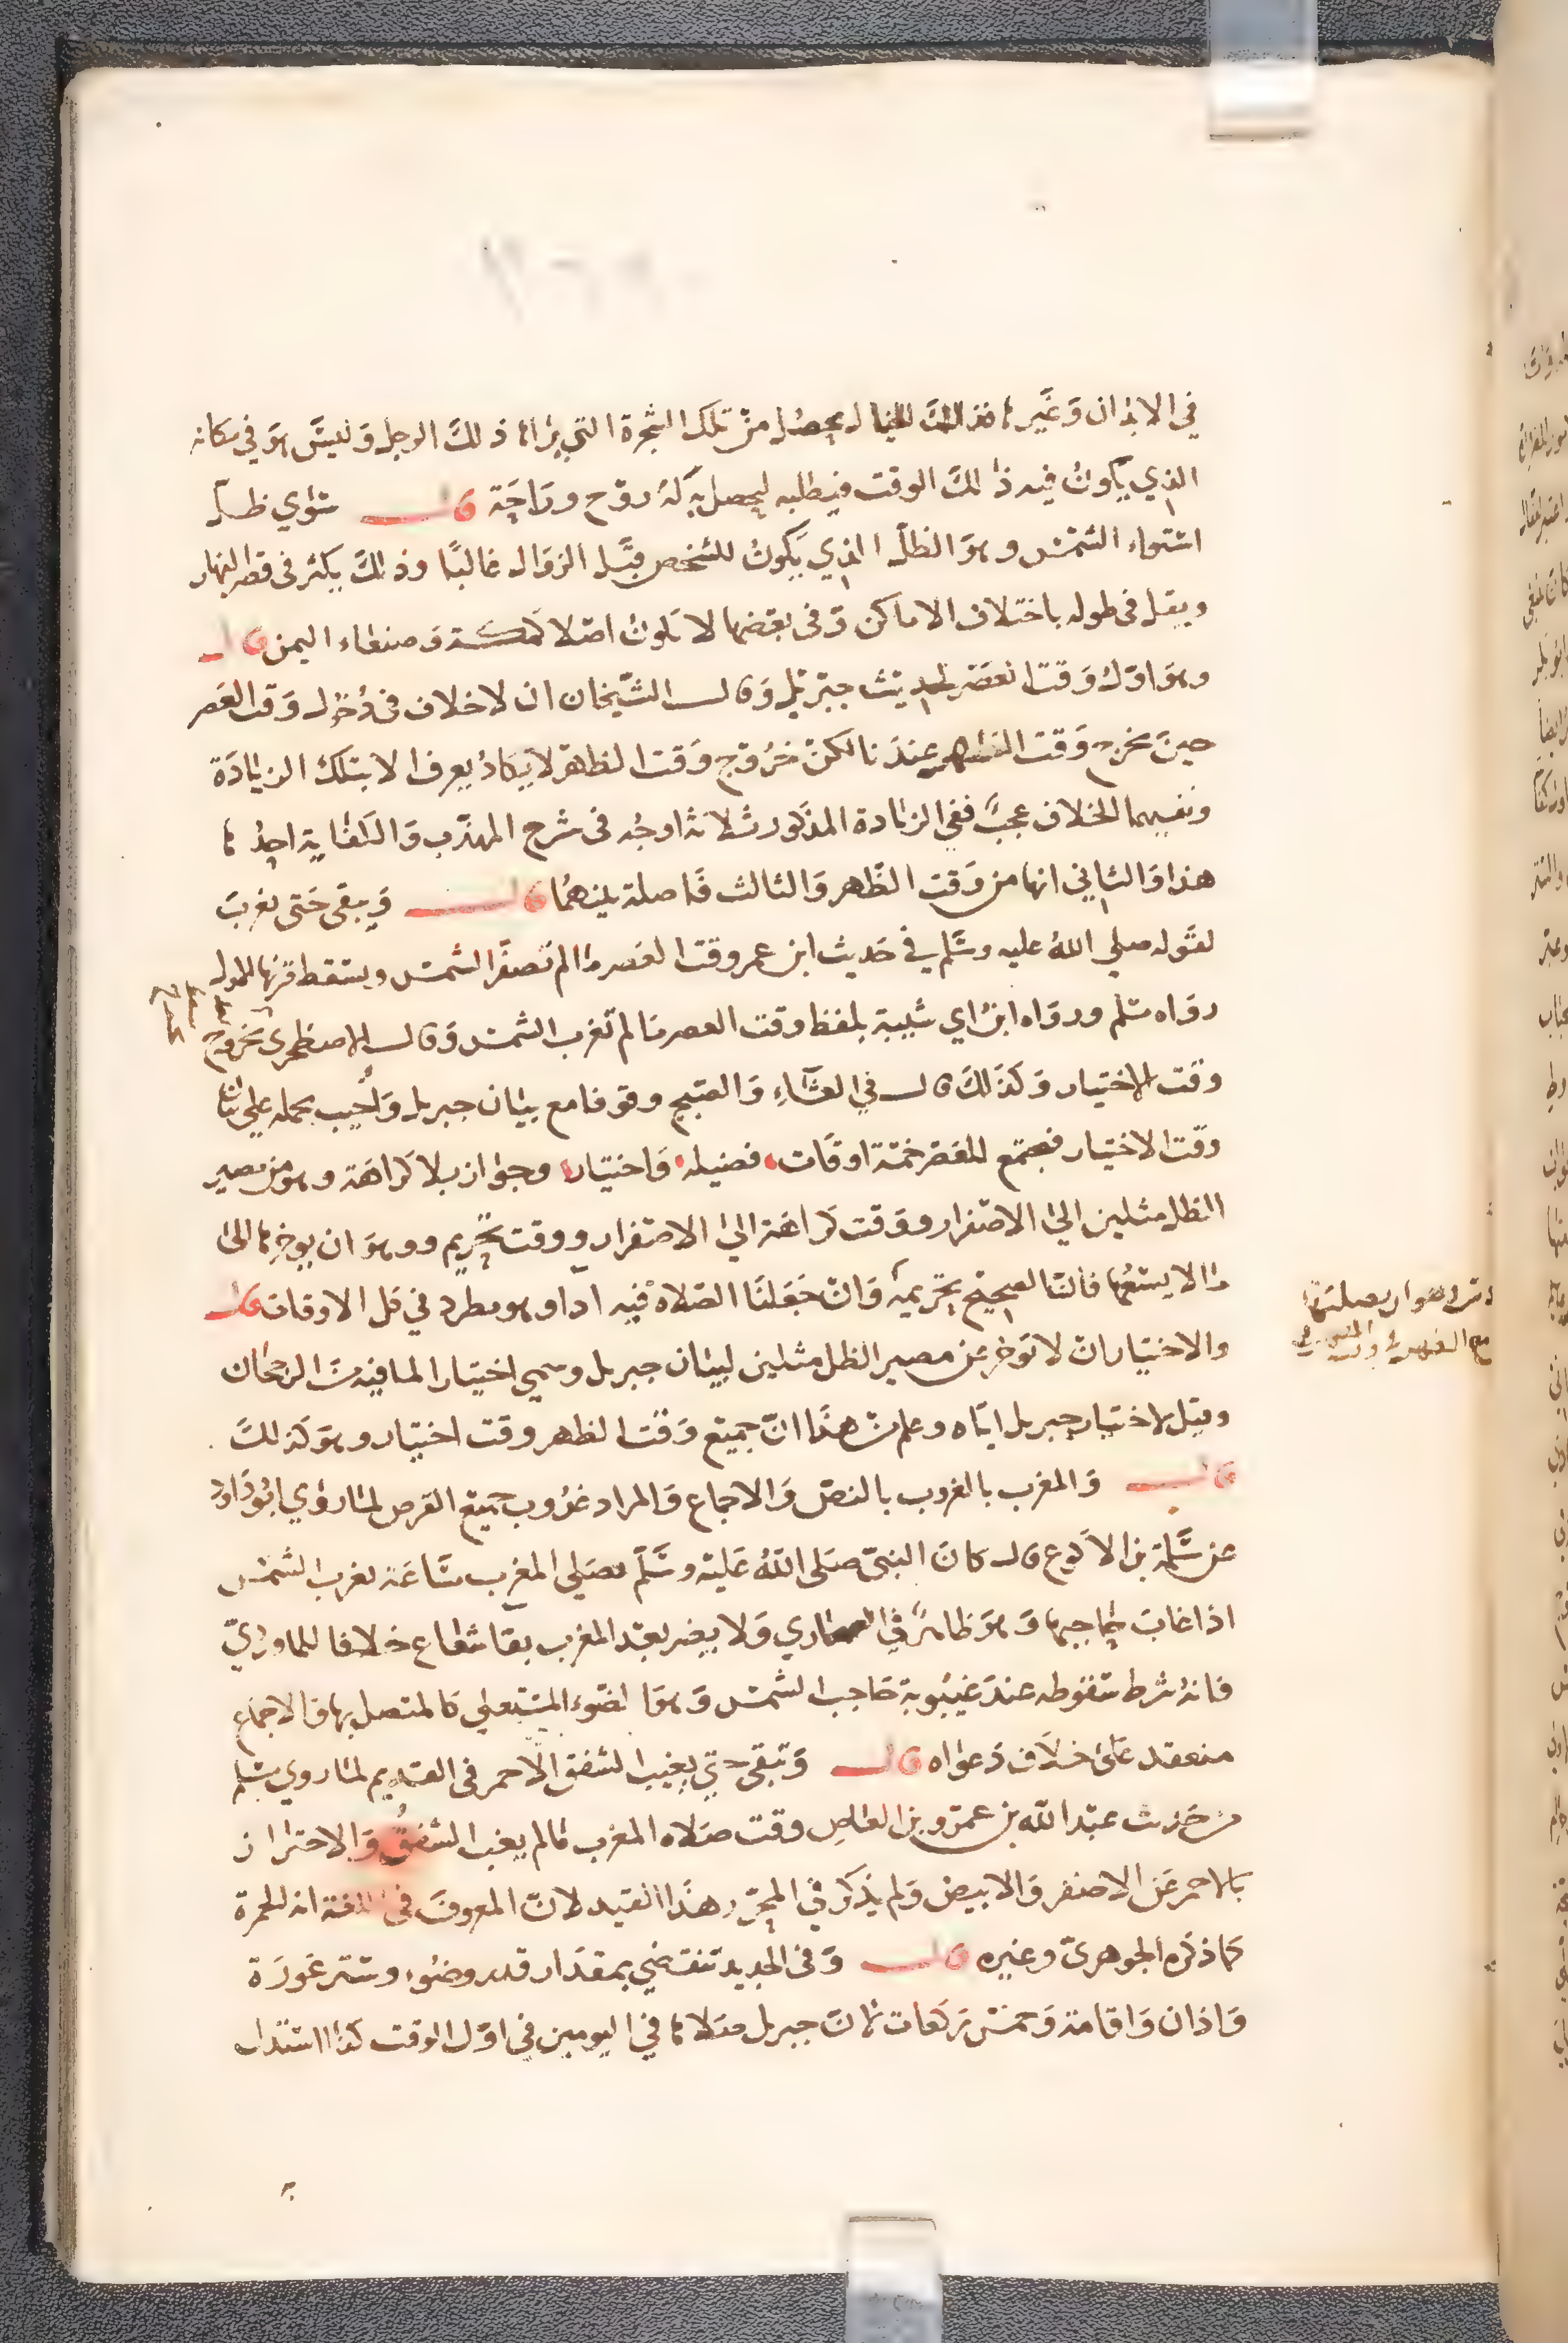 في الابدان وغيرها فذلك الخيال يحصل من تلك الشجرة التي يراها ذلك الرجل وليس هو في مكانه
الذي يكون فيه ذلك الوقت فيطلبه ليحصل به له روح وراحة قال سوي ظل
استواء الشمس وهو الظل الذي يكون للشخص قبل الزوال غالبا وذلك يكثر في قصر النهار
ويقل في طوله باختلاف الاماكن وفي بعضها لا يكون اصلا كمكة وصنعاء اليمن قال
وهو اول وقت العصر لحديث جبريل وقال الشيخان ان لا خلاف في دخول وقت العصر
حين يخرج وقت الظهر عندنا لكن خروج وقت الظهر لا يكاد يعرف الا بتلك الزيادة
ونفيهما الخلاف عجب ففي الزيادة المذكور ثلاثة اوجه في شرح المهذب والكفاية احدها
هذا والثاني انها من وقت الظهر والثالث فاصلة بينهما قال ويبقى حتى تغرب
لقوله صلي الله عليه وسلم في حديث ابن عمر وقت العصر ما لم تصفر الشمس ويسقط قرنها الاول
رواه مسلم ورواه ابن ابي شيبة بلفظ وقت العصر ما لم تغرب الشمس وقال الاصطخري يخرج
وقت الاختيار وكذلك قال في العشاء والصبح وقوفا مع بيان جبريل واجيب بحمله علي بيان
وقت الاختيار فيجتمع للعصر خمسة اوقات فضيله واختيار وجواز بلا كراهة وهو من مصير
الظل مثلين الي الاصفرار ووقت كراهة الي الاصفرار ووقت تحريم وهو ان يوخرها الى
ما لا يسعها فان الصحيح تحريمه وان جعلنا الصلاة فيه ادا وهو مطرد في كل الاوقات قال
والاختيار ان لا توخر عن مصير الظل مثلين لبيان جبريل وسمي اختيارا لما فيه من الرجحان
وقيل لاختيار جبريل اياه وعلم من هذا ان جميع وقت الظهر وقت اختيار وهو كذلك
قال والمغرب بالغروب بالنص والاجماع والمراد غروب جميع القرص لما روي ابو داود
عن سلمة بن الاكوع قال كان النبي صلى الله عليه وسلم يصلي المغرب ساعة تغرب الشمس
اذا غاب حاجبها وهو ظاهر في الصحاري ولا يضر بعد المغرب بقا شعاع خلافا للماوردي
فانه شرط سقوطه عند غيبوبة حاجب الشمس وهو الضوء المستعلي كالمتصل بها والاجماع
منعقد على خلاف دعواه قال وتبقى حتي يغيب الشفق الاحمر في القديم لما روي مسلم
من حديث عبد الله بن عمرو بن العاص وقت صلاه المغرب ما لم يغب الشفق والاحتراز
بالاحمر عن الاصفر والابيض ولم يذكر في المحرر هذا القيد لان المعروف في اللغة انه الحمرة
كما ذكره الجوهري وغيره قال وفي الجديد تنقضي بمقدار قدر وضوء وستر عورة
واذان واقامة وخمس ركعات لان جبريل صلاها في اليومين في اول الوقت كذا استدل